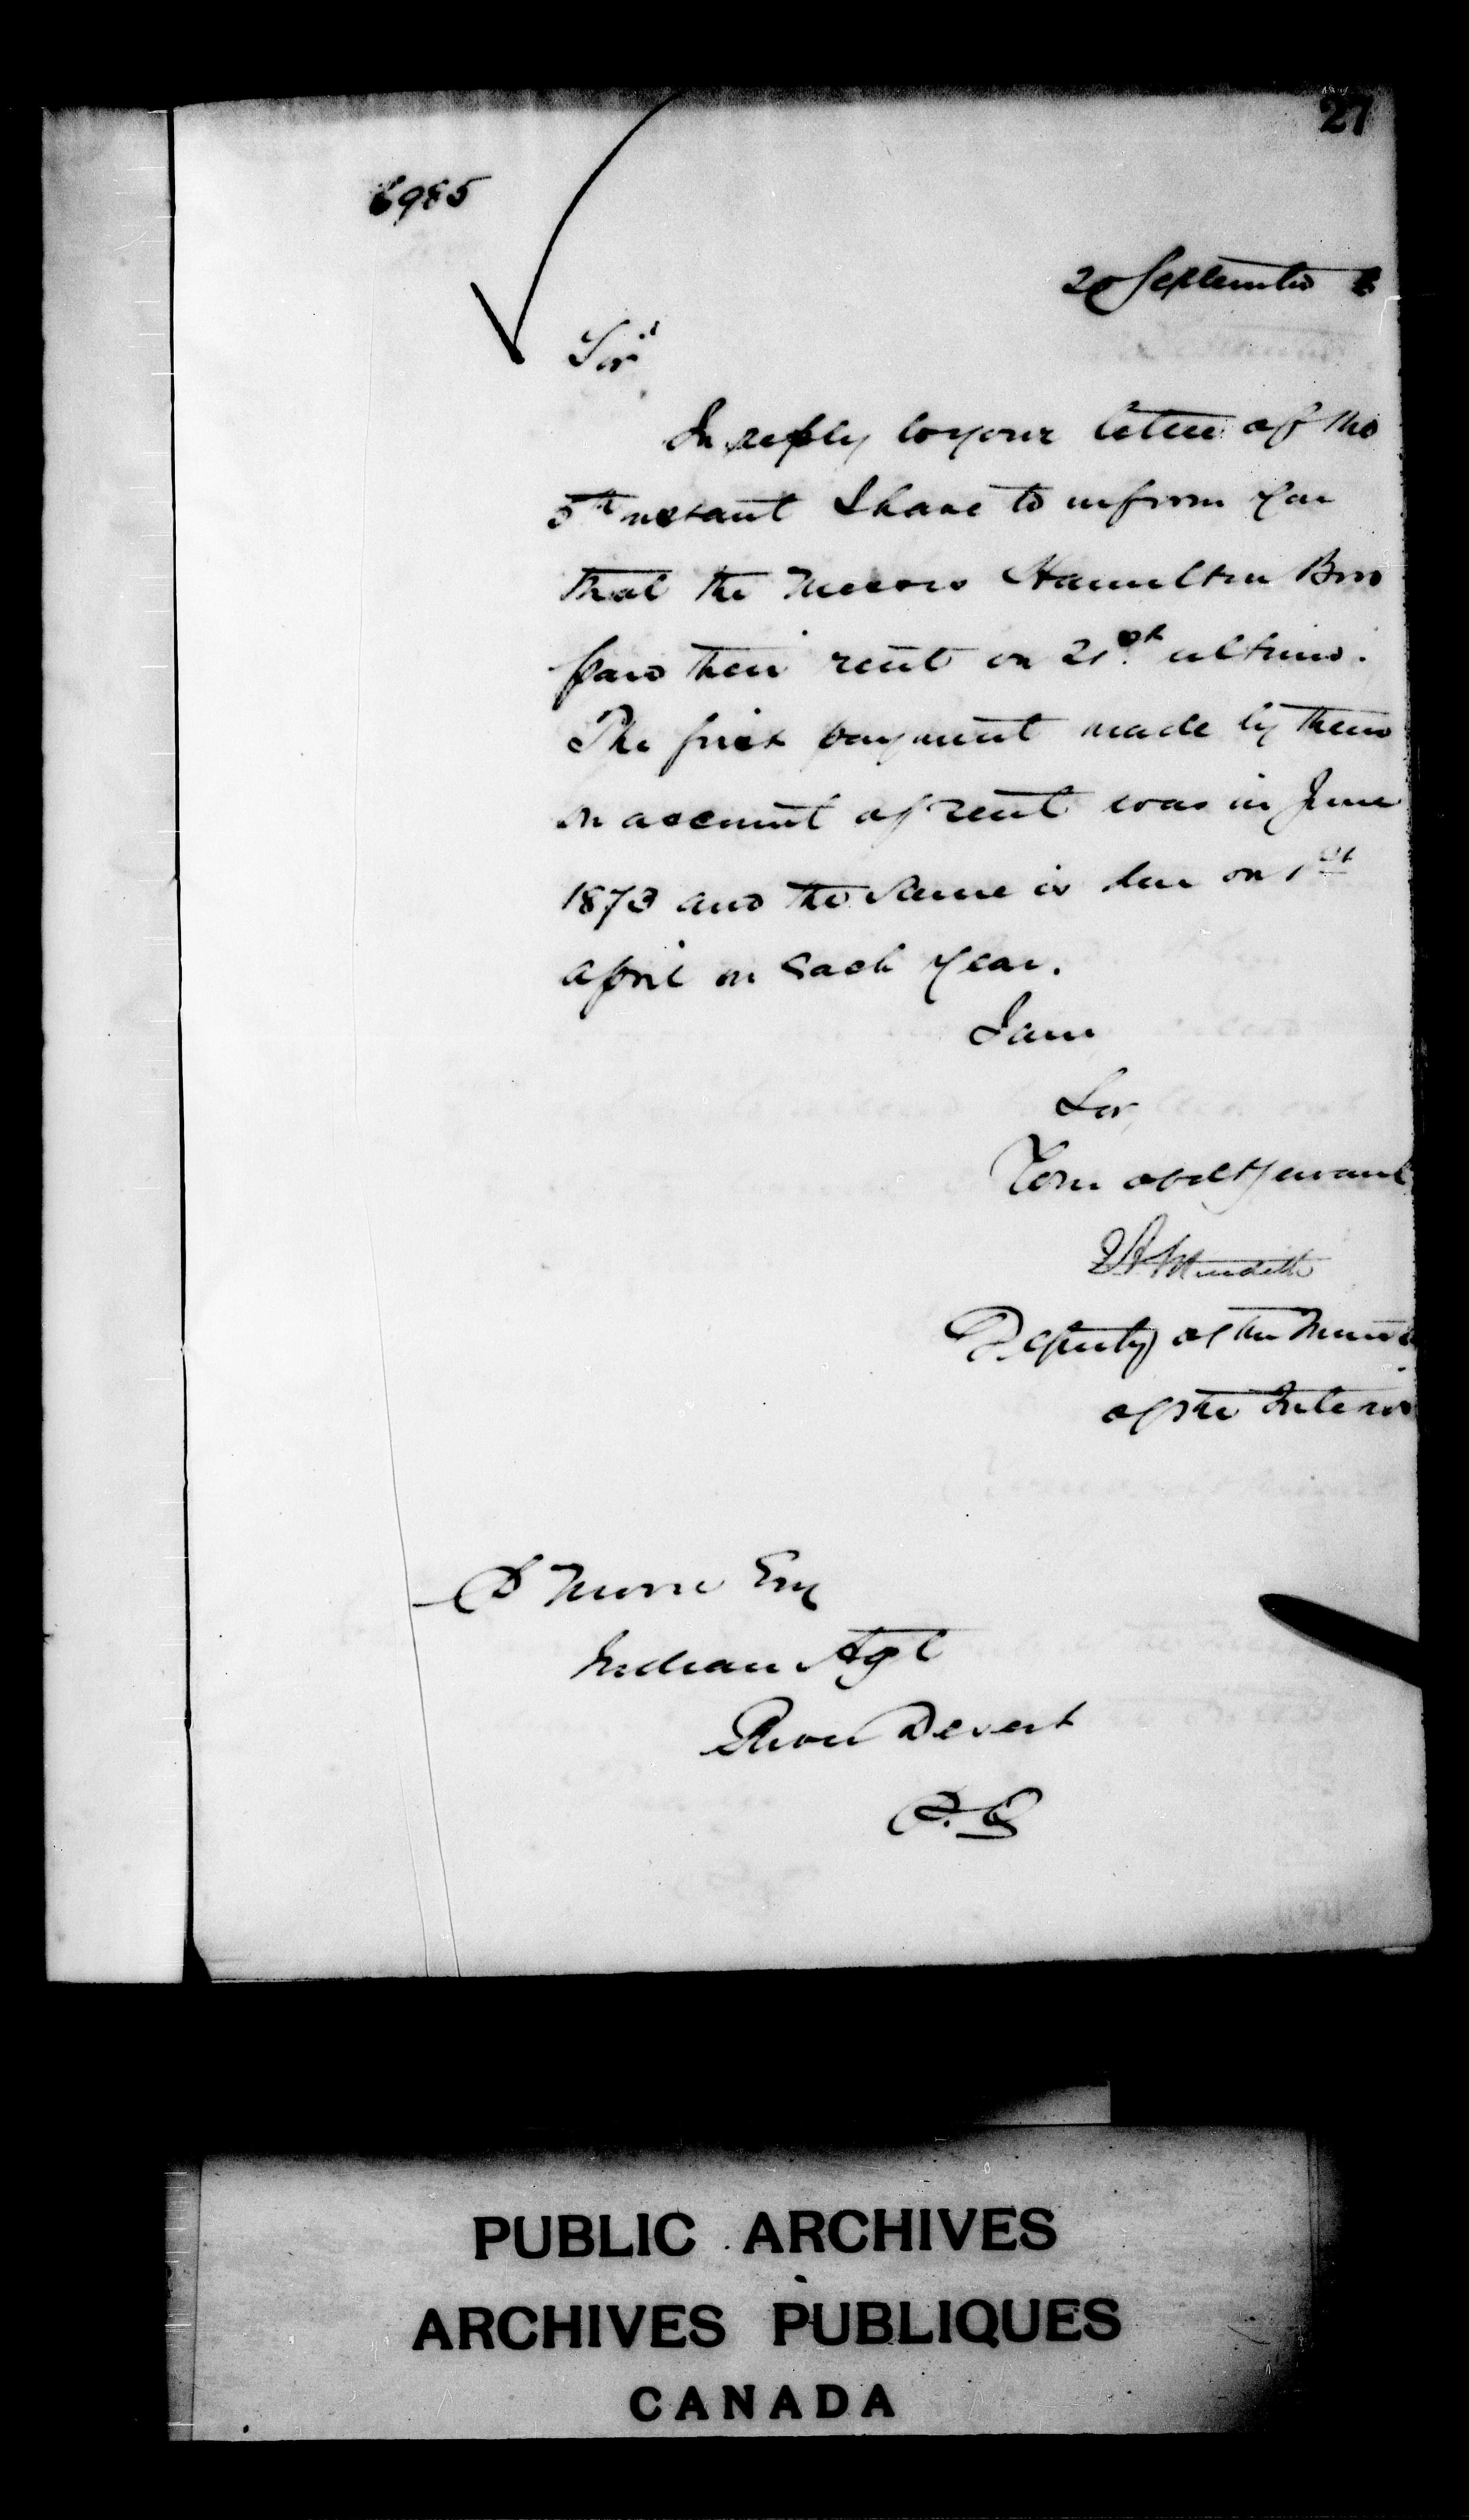 27
6985
20 September
Sir
In reply to your letter of the
5th instant I have to inform you
that the Messrs Hamilton Bros
paid their rent on 21st ultimo.
The first payment made by them
on account of rent was in June
1873 and the same is due on 1st
April in each year.
I am
Sir,
Your obdt Servant
Meredith
Deputy of the
of the Interior
Esq
Indian Agt
River Desert
P.Q
PUBLIC ARCHIVES
ARCHIVES PUBLIQUES
CANADA